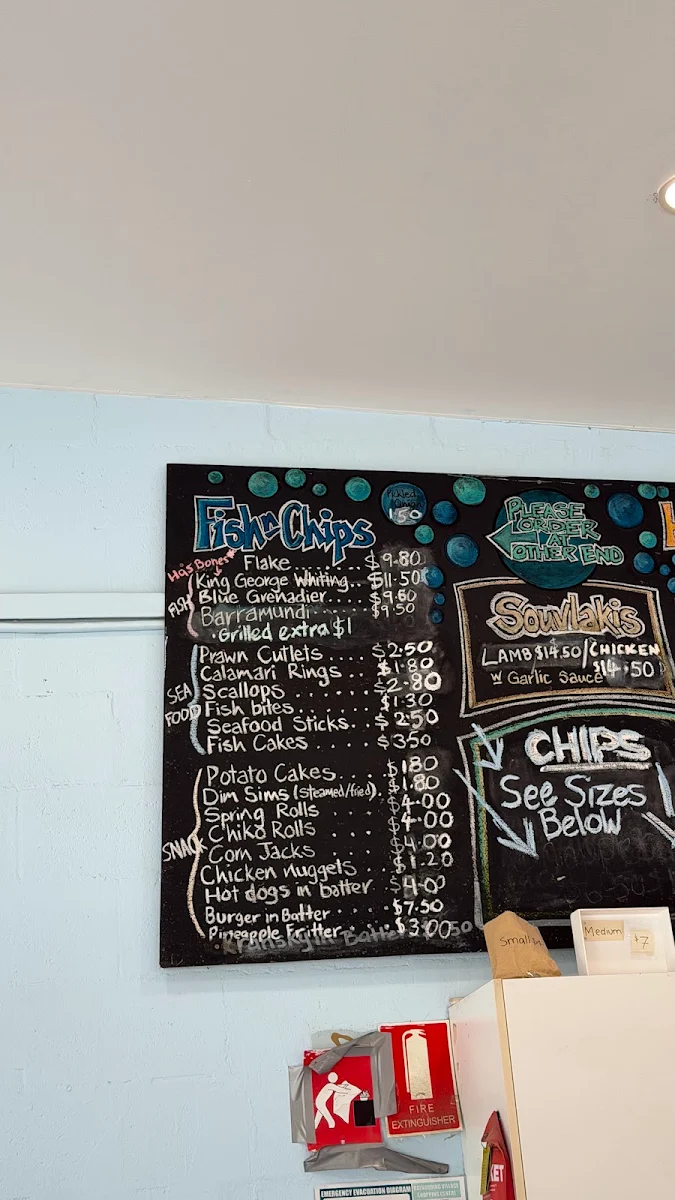 1.50
Fish n Chips
PLEASE
ORDER
AT
OTHER END
Has Bones*
FISH
Flake...... $9.80
King George Whiting... $11.50
Blue Grenadier.... $9.60
Barramundi ..... $9.50
· Grilled extra $1
SEA
FOOD
Prawn Cutlets .... $2.50
Calamari Rings .... $1.80
Scallops ...... $2.80
Fish bites ..... $1.30
Seafood Sticks.... $2.50
Fish Cakes ..... $3.50
SNACK
Potato Cakes .... $1.80
Dim Sims (steamed/fried). $1.80
Spring Rolls $4.00
Chiko Rolls $4.00
Corn Jacks $4.00
Chicken nuggets .... $1.20
Hot dogs in batter $4.00
Burger in Batter .... $7.50
Pineapple Fritter.. $3.00
Souvlakis
LAMB $14.50 / CHICKEN
$14.50
w Garlic Sauce
CHIPS
See Sizes
Below
Small
Medium
$7
FIRE
EXTINGUISHER
EMERGENCY EVACUATION DIAGRAM